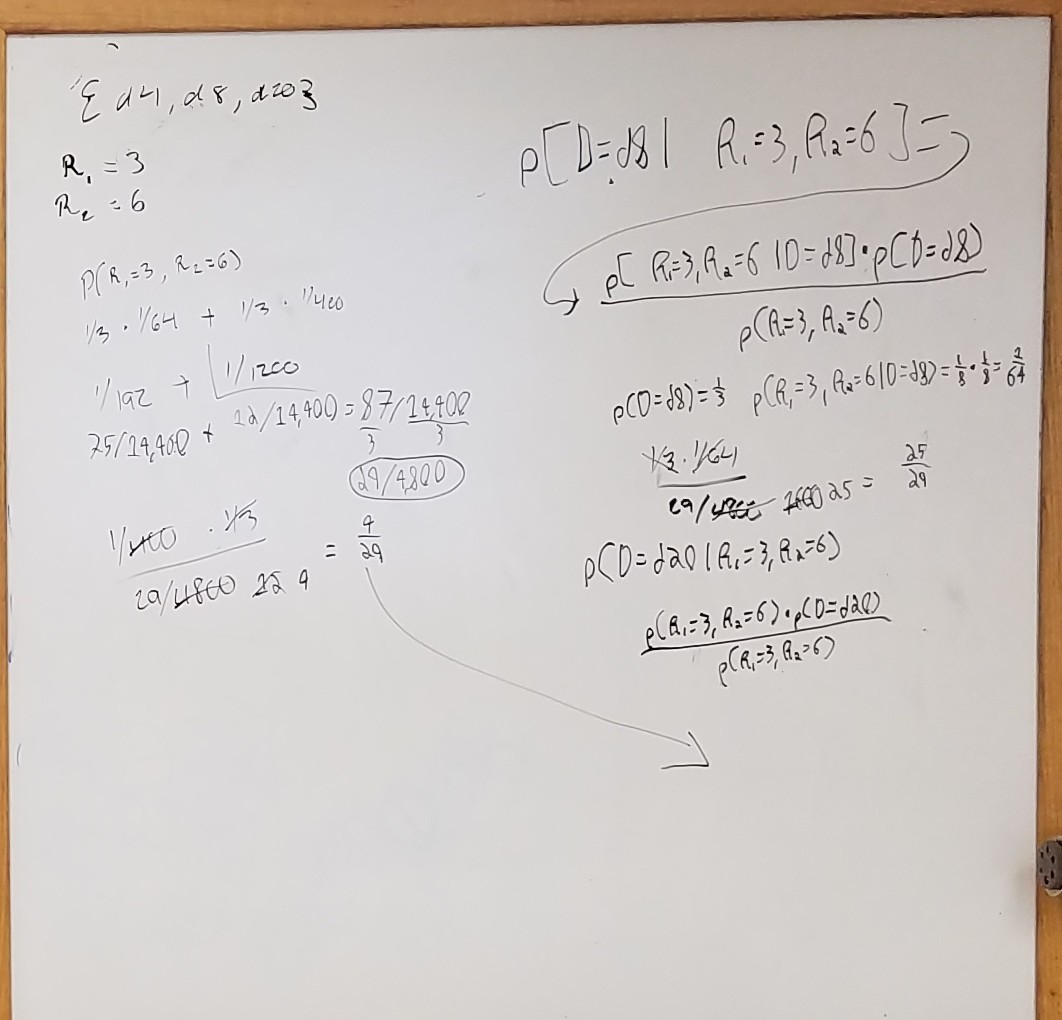 { d4, d8, d20}
R₁ = 3
R₂ = 6
P(R₁=3, R₂=6)
1/3 · 1/64 + 1/3 · 1/400
1/192 + 1/1200
75/14,400 + 12/14,400) = 87/14,400
3 3
29/4,800
1/400 · 1/3
29/4800 12 4
= 4/29
p[D=d8 | R₁=3, R₂=6] =
p[ R₁=3, R₂=6 | D=d8] · p(D=d8)
p(R₁=3, R₂=6)
p(D=d8) = 1/3 p(R₁=3, R₂=6 | D=d8) = 1/8 · 1/8 = 1/64
1/3 · 1/64
29/4800 1600 25 = 25/29
p(D=d20 | R₁=3, R₂=6)
p(R₁=3, R₂=6) · p(D=d20)
p(R₁=3, R₂=6)